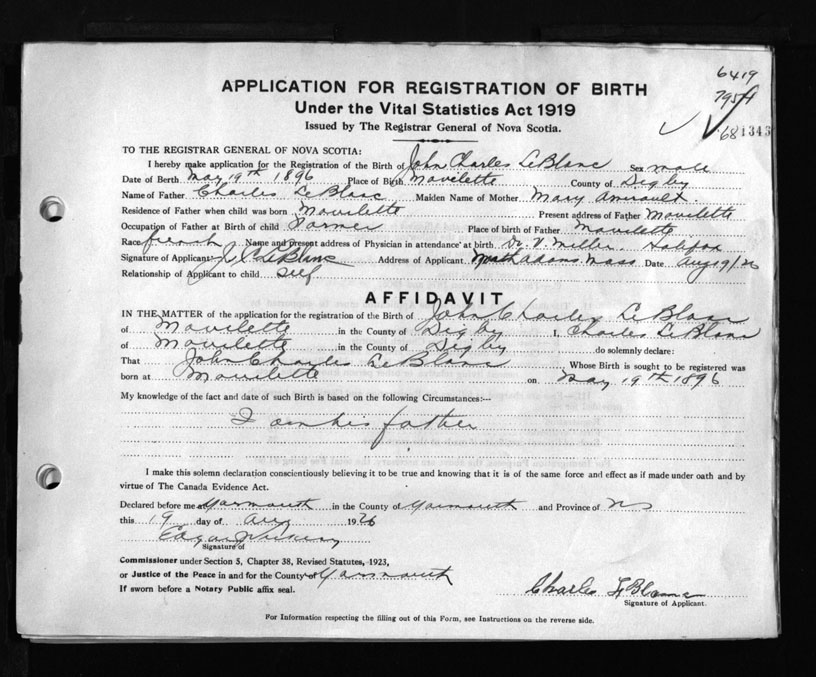 6419
7954
681343
APPLICATION FOR REGISTRATION OF BIRTH
Under the Vital Statistics Act 1919
Issued by The Registrar General of Nova Scotia.
TO THE REGISTRAR GENERAL OF NOVA SCOTIA:
I hereby make application for the Registration of the Birth of John Charles LeBlanc Sex male
Date of Birth May 19th 1896 Place of Birth Mavilette County of Digby
Name of Father Charles LeBlanc Maiden Name of Mother Mary Amirault
Residence of Father when child was born Mavilette Present address of Father Mavilette
Occupation of Father at Birth of child Farmer Place of birth of Father Mavilette
Race french Name and present address of Physician in attendance at birth Dr. V. Miller Halifax
Signature of Applicant J C LeBlanc Address of Applicant North Adams Mass Date Aug 19/26
Relationship of Applicant to child self
AFFIDAVIT
IN THE MATTER of the application for the registration of the Birth of John Charles LeBlanc
of Mavilette in the County of Digby I, Charles LeBlanc
of Mavilette in the County of Digby do solemnly declare:
That John Charles LeBlanc Whose Birth is sought to be registered was
born at Mavilette on May 19th 1896
My knowledge of the fact and date of such Birth is based on the following Circumstances:--
I am his father
I make this solemn declaration conscientiously believing it to be true and knowing that it is of the same force and effect as if made under oath and by
virtue of The Canada Evidence Act.
Declared before me at Yarmouth in the County of Yarmouth and Province of NS
this 19 day of Aug 1926
Signature of
Commissioner under Section 3, Chapter 38, Revised Statutes, 1923,
or Justice of the Peace in and for the County of Yarmouth
If sworn before a Notary Public affix seal.
Charles LeBlanc
Signature of Applicant.
For Information respecting the filling out of this Form, see Instructions on the reverse side.